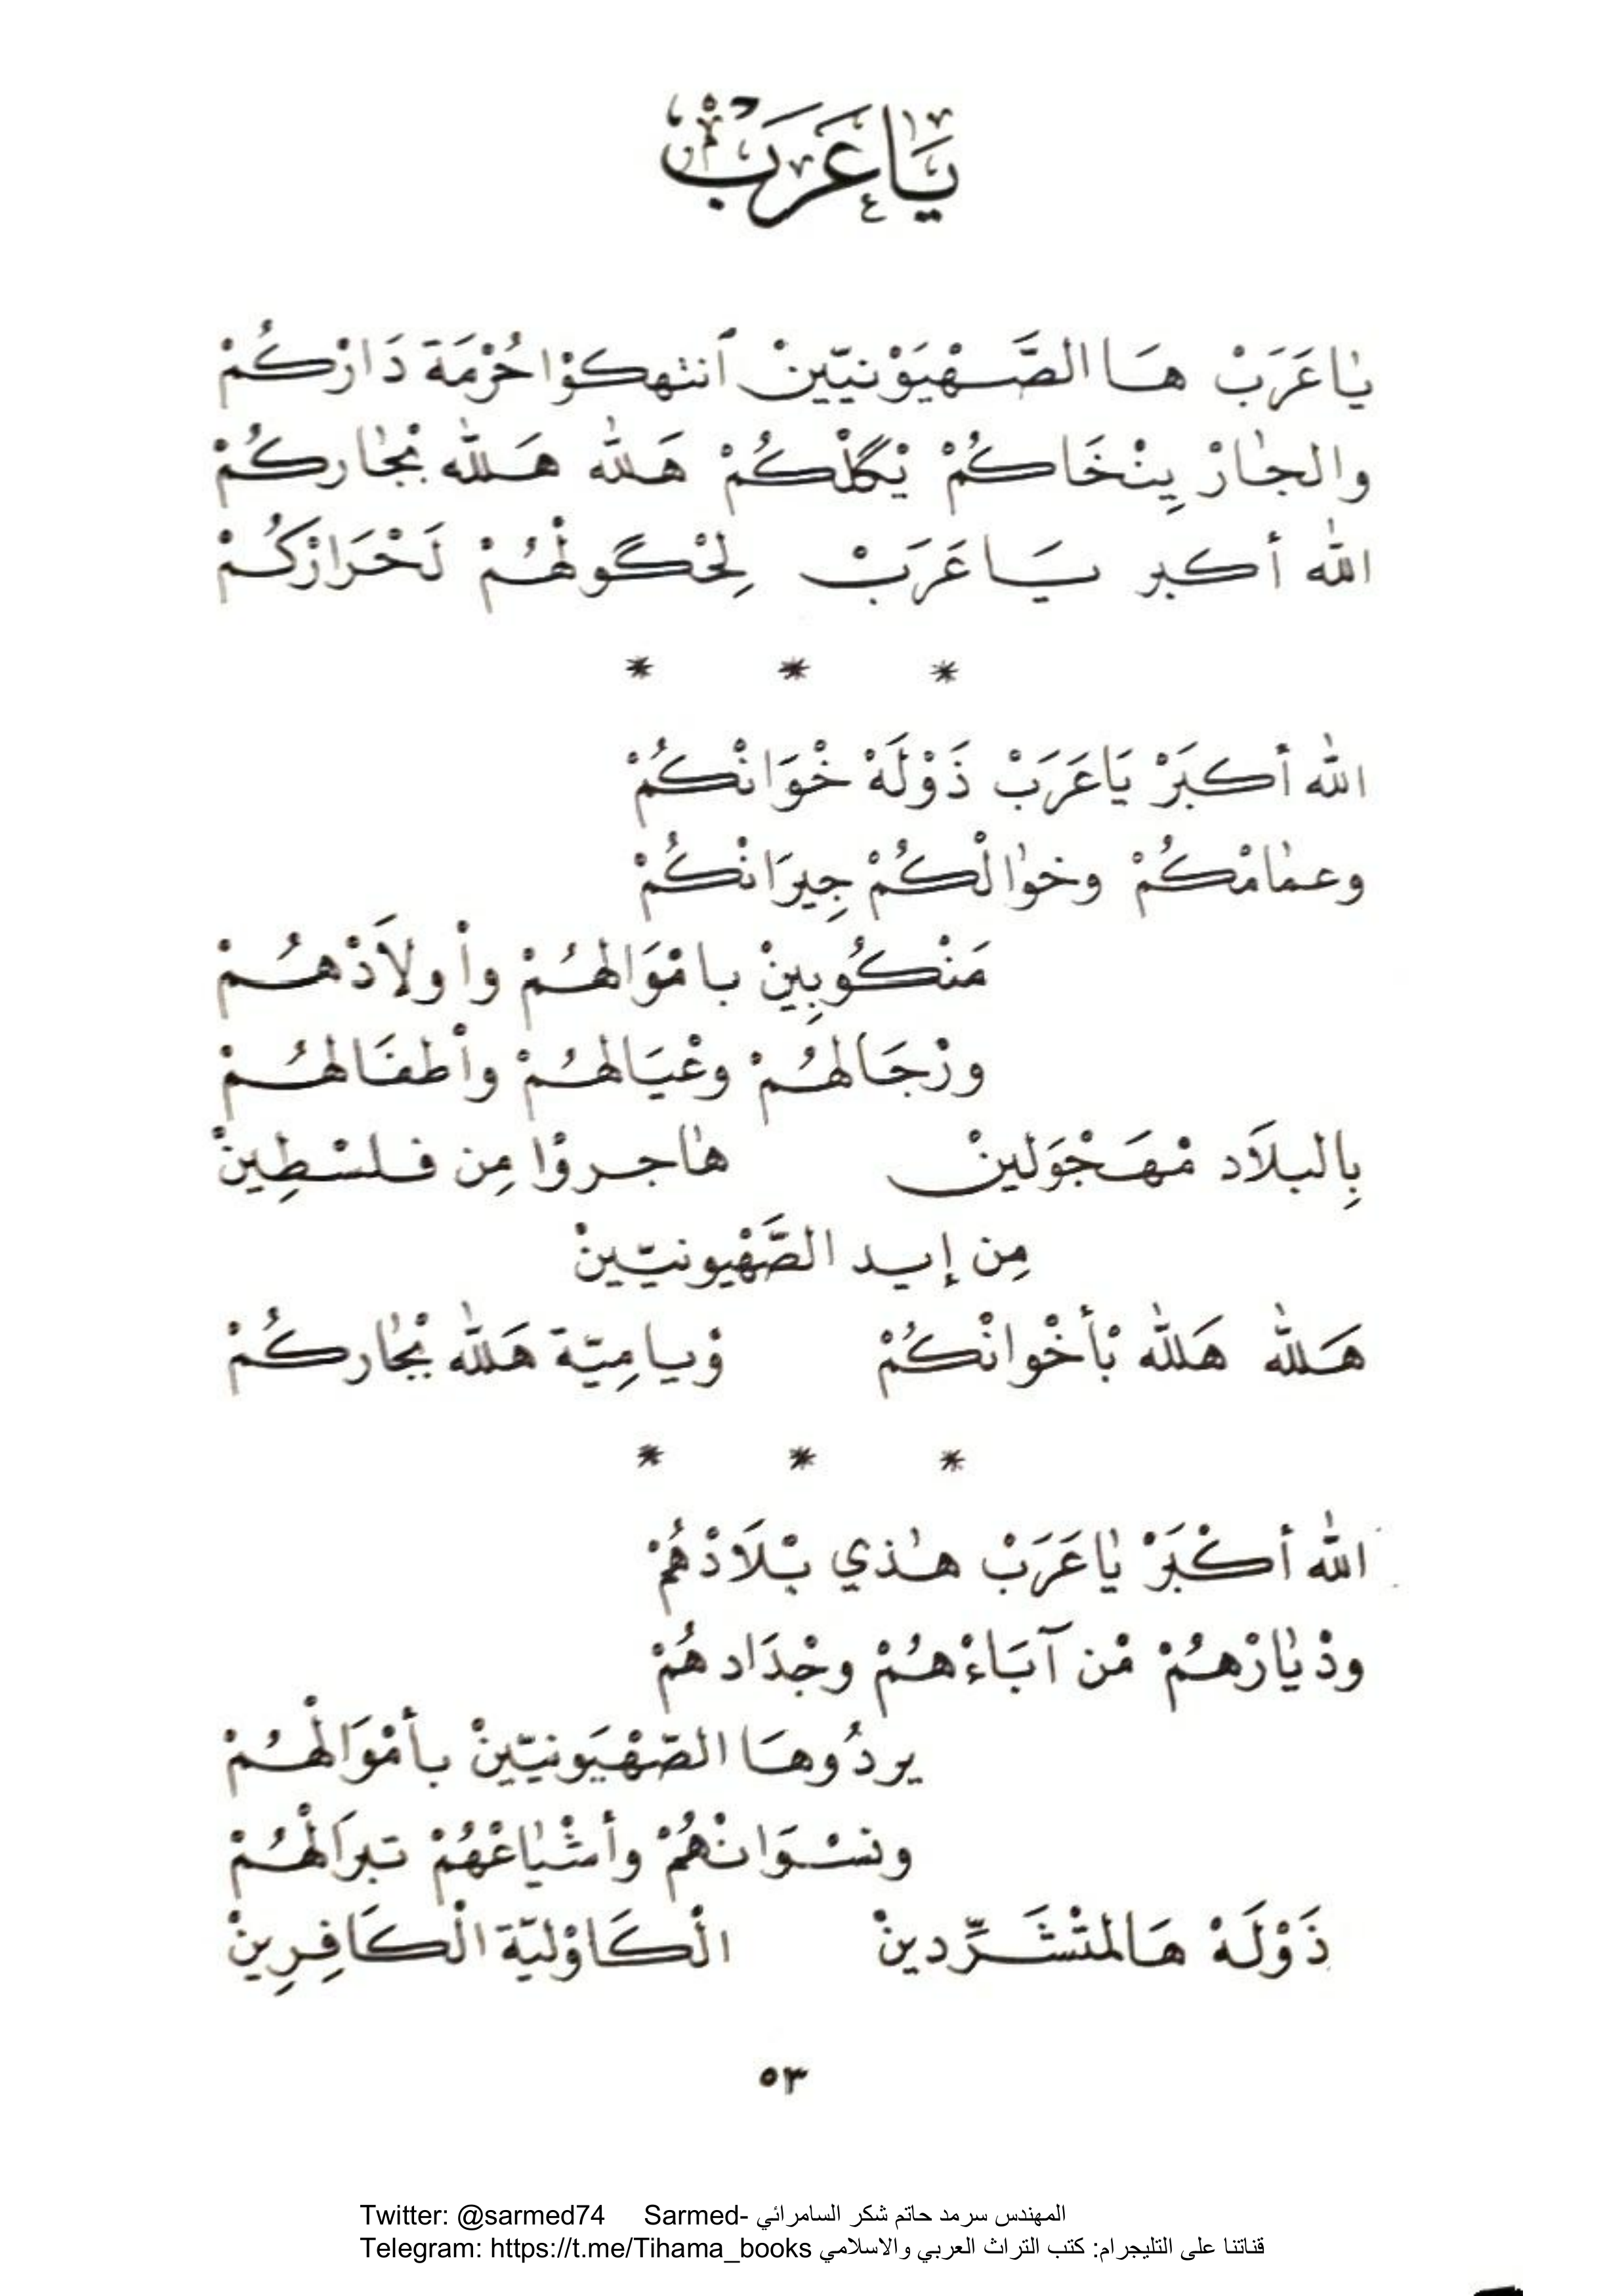 يَاعَرَبْ
يٰاعَرَبْ هَا الصَّهْيَوْنيّينْ ٱنتهكوْا حُرْمَة دَارْكُمْ
والجٰارْ يِنْخَاكُمْ يْگلْكُمْ هَللّٰه هَللّٰه بْجٰاركُمْ
اللّٰه أكبر يَاعَرَبْ لِحْگولْهُمْ لَحْرَارْكُمْ
* * *
اللّٰه أكبَرْ يَاعَرَبْ ذَوْلَهْ خْوَانْكُمْ
وعمٰامْكُمْ وخوٰالْكُمْ جِيرَانْكُمْ
مَنْكُوبِينْ بامْوَالهُمْ واْولاَدْهُمْ
ورْجَالهُمْ وعْيَالهُمْ واْطفَالهُمْ
بِالبلاَد مْهَجْوَلينْ هٰاجروْا مِن فلسْطِينْ
مِن إيد الصَّهْيونيّينْ
هَللّٰه هَللّٰه بْأخْوانْكُمْ وْيامِيّة هَللّٰه بْجٰاركُمْ
* * *
اللّٰه أكْبَرْ يٰاعَرَبْ هٰذي بْلاَدْهُمْ
ودْيٰارْهُمْ مْن آبَاءْهُمْ وجْدَادهُمْ
يردُوهَا الصّهْيَونيّينْ بأمْوَالْهُمْ
ونسْوَانْهُمْ وأشْيٰاعْهُمْ تبرَالْهُمْ
ذَوْلَهْ هَالمتْشَرِّدينْ الْكَاوْليّة الْكَافِرِينْ
٥٣
Twitter: @sarmed74 Sarmed- المهندس سرمد حاتم شكر السامرائي
Telegram: https://t.me/Tihama_books قناتنا على التليجرام: كتب التراث العربي والاسلامي